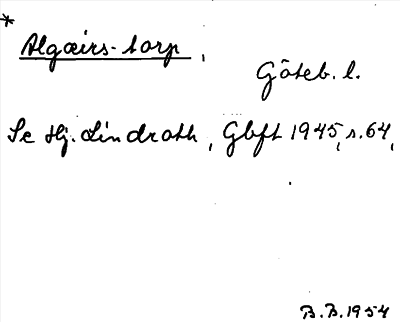 *
Algairs-torp,
Göteb. l.
Se Hj. Lindroth, Gbft 1945, s. 64,
B.B. 1954